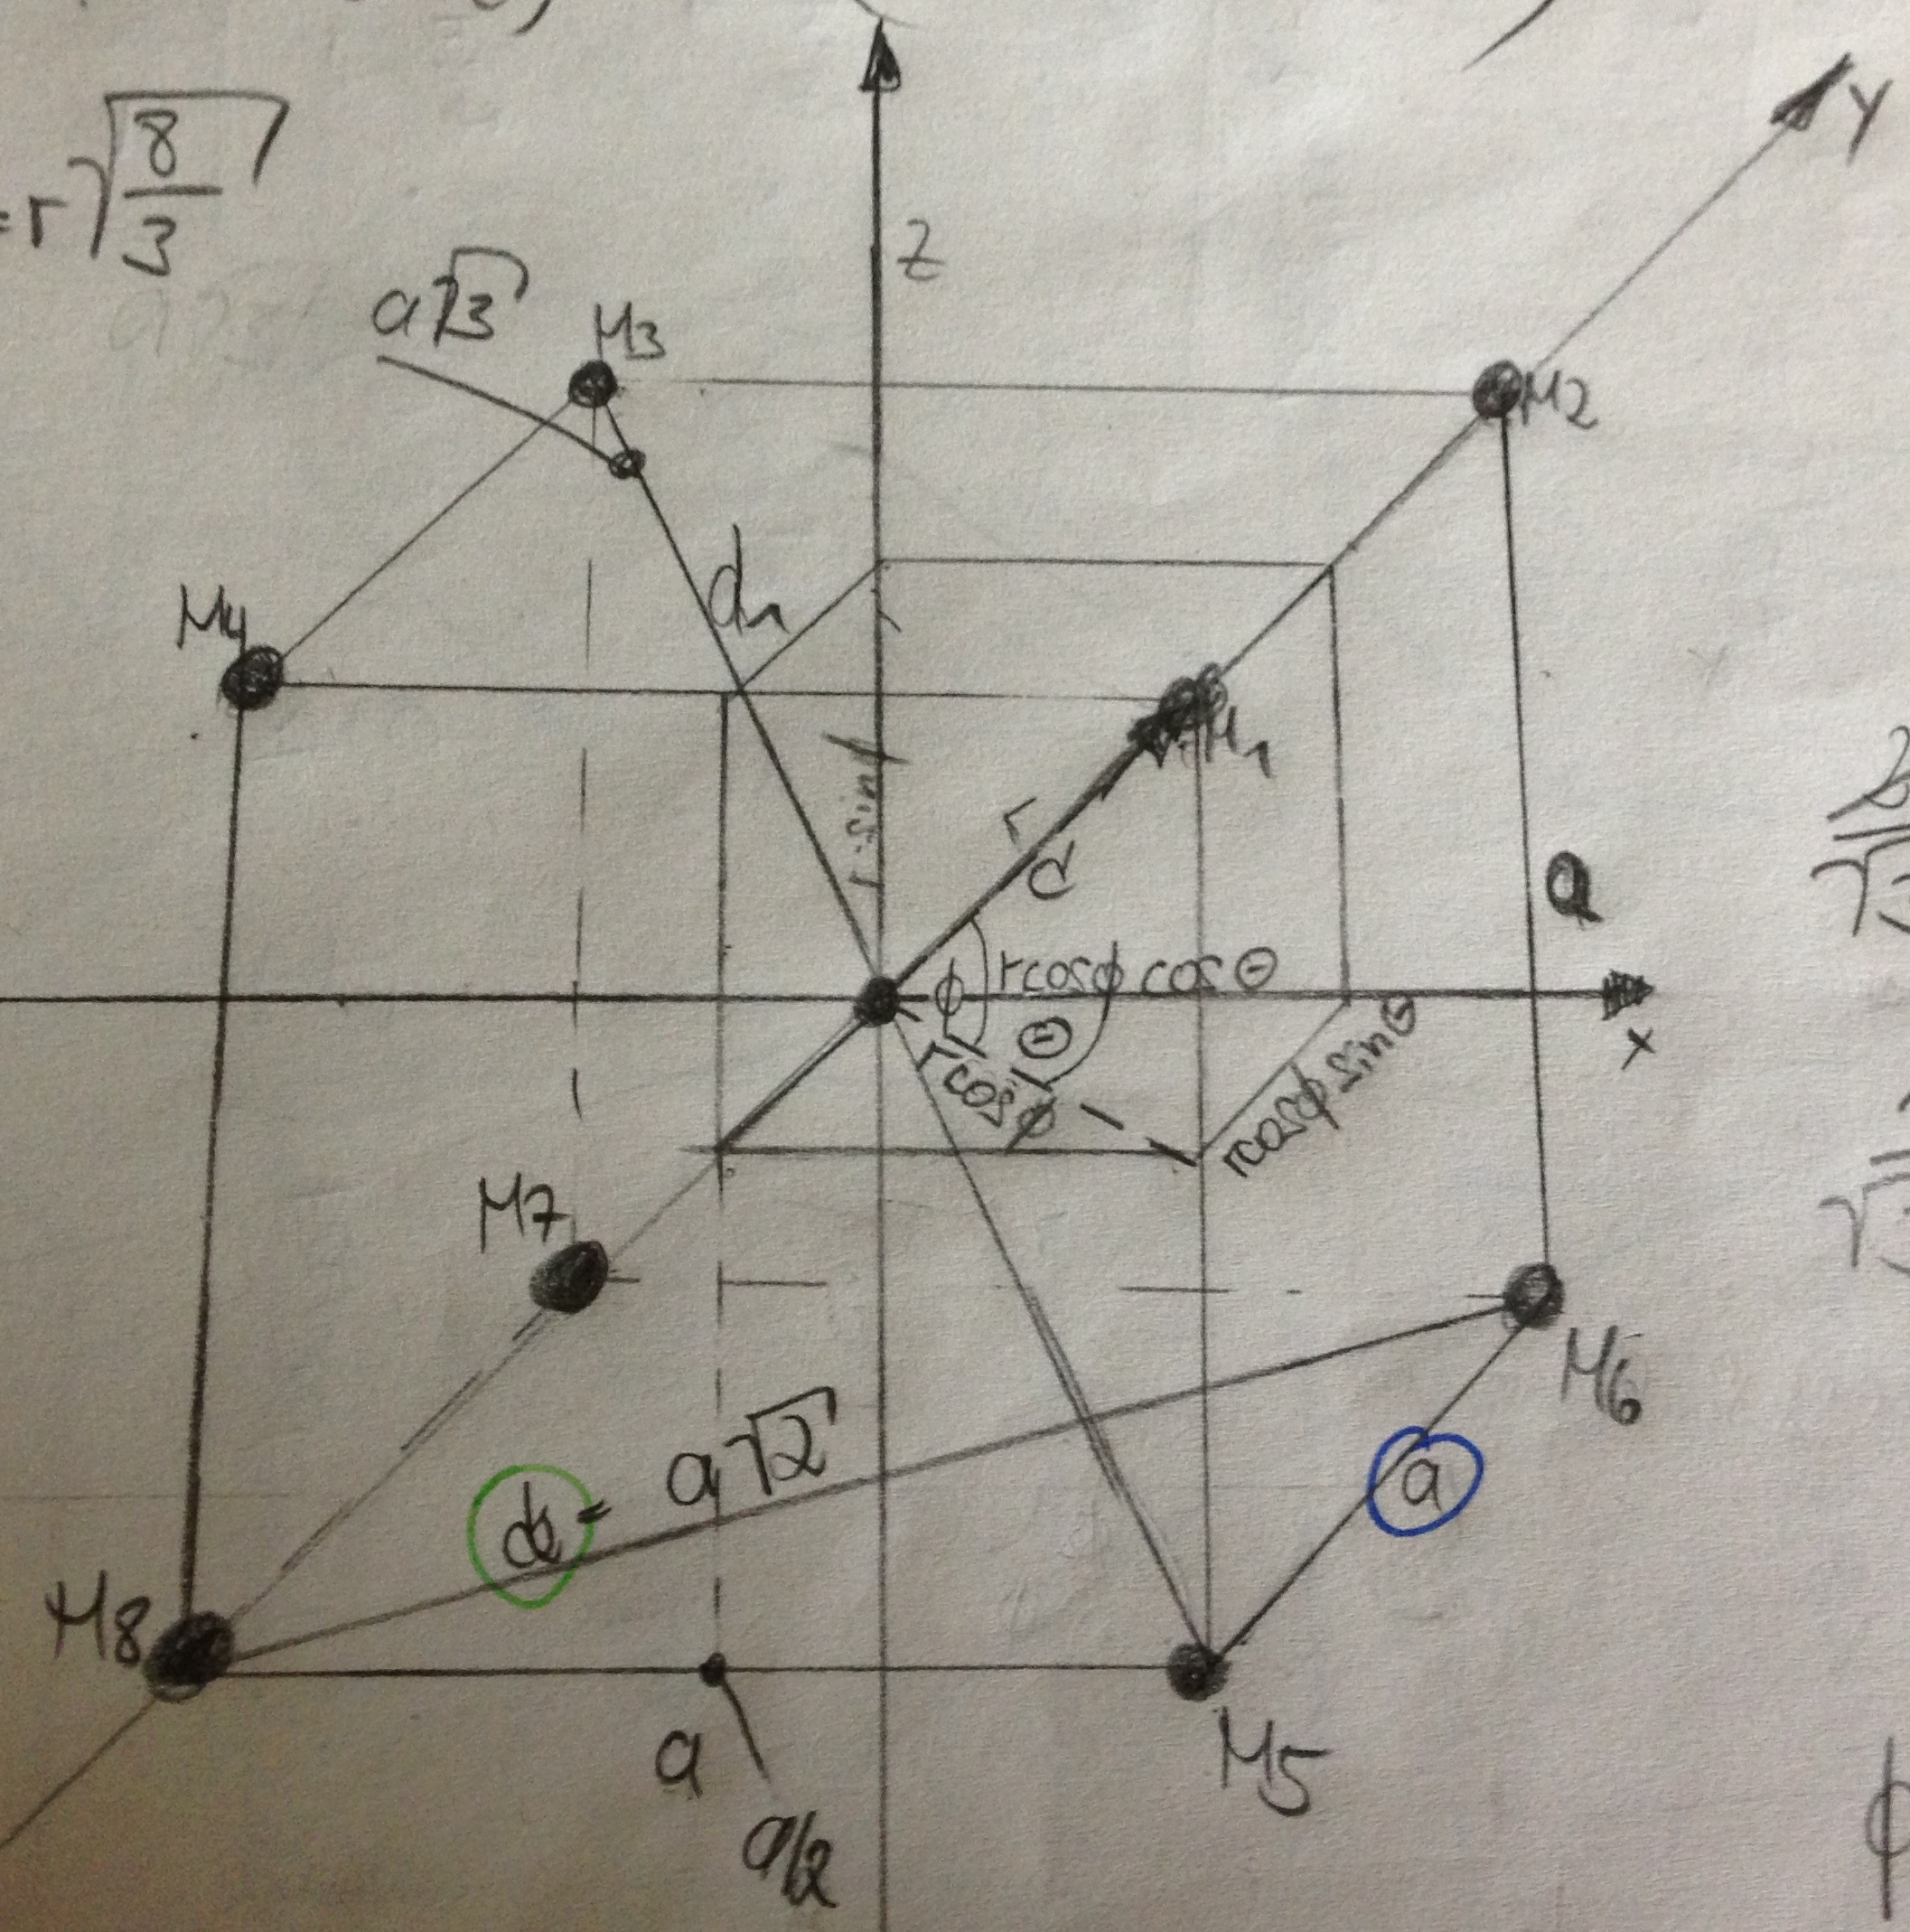 =r√8/3
a√3
M3
Z
Y
M2
M4
d1
M1
r sinϕ
r
d
a
ϕ
rcosϕ cosΘ
Θ
rcosϕ
rcosϕ sinΘ
x
M7
M6
= a√2
a
M8
a
a/2
M5
ϕ